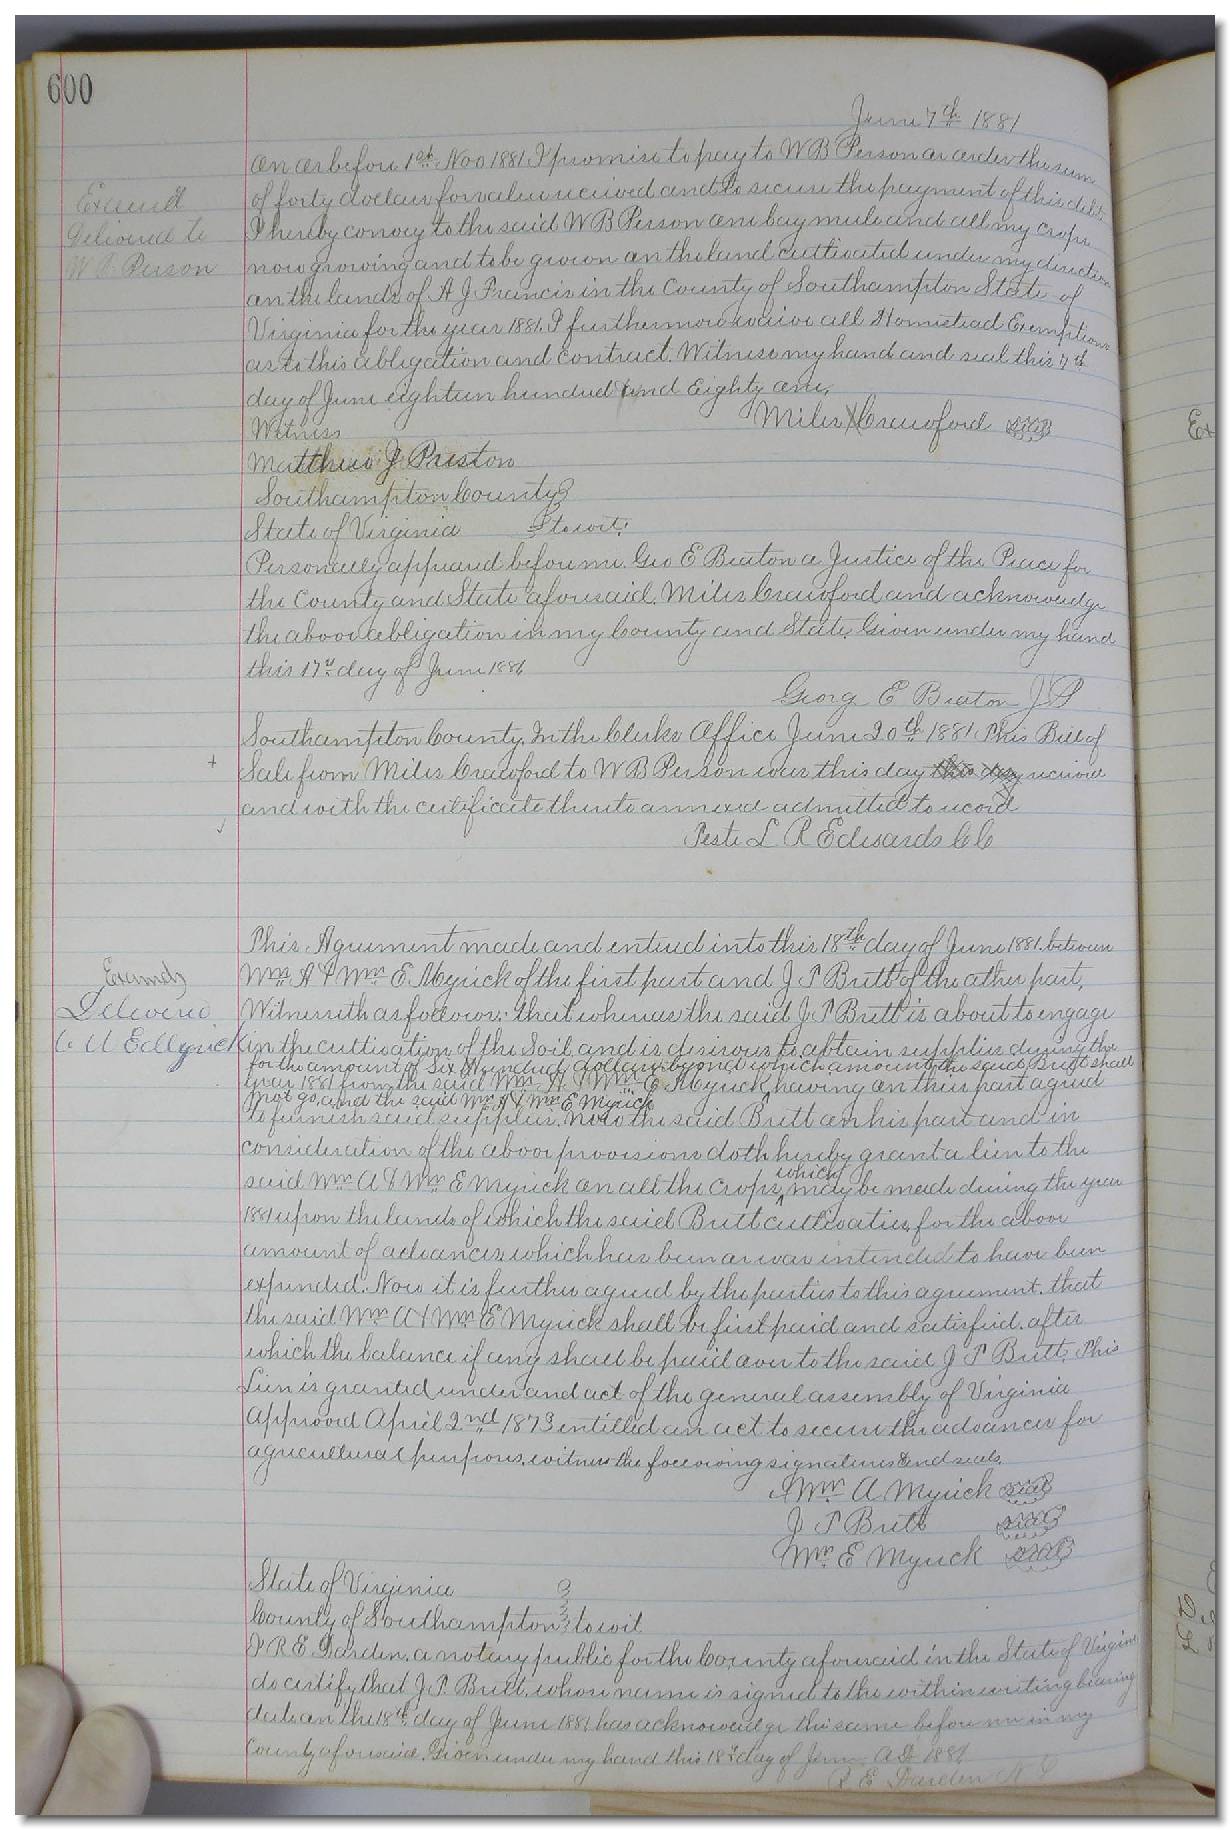 600
June 7th 1881
On or before 1st Nov 1881 I promise to pay to W B Person or order the sum
of forty dollars for value received and to secure the payment of this debt
I hereby convey to the said W B Person one bay mule and all my crops
now growing and to be grown on the land cultivated under my direction
on the lands of A J Francis in the County of Southampton State of
Virginia for the year 1881. I furthermore waive all Homestead Exemptions
as to this obligation and contract. Witness my hand and seal this 7th
day of June eighteen hundred and Eighty one,
Miles X Crawford seal
Witness
Matthew J Preston
Southampton County
State of Virginia to wit:
Personally appeared before me Geo E Beaton a Justice of the Peace for
the County and State aforesaid. Miles Crawford and acknowledge
the above obligation in my County and State. Given under my hand
this 17th day of June 1881
Georg E Beaton J P
Southampton County. In the Clerks Office June 20th 1881 This Bill of
Sale from Miles Crawford to W B Person was this day this day received
and with the certificate thereto annexed admitted to record
Teste L R Edwards C C
Examd
Delivered to
W B Person
This Agreement made and entered into this 18th day of June 1881. between
Wm A & Wm E Myrick of the first part and J T Britt of the other part,
Witnesseth as follows: that whereas the said J. T Britt is about to engage
in the cultivation of the Soil, and is desirous to obtain supplies during the
for the amount of Six Hundred dollars beyond which amount the said Britt shall
year 1881 from the said Wm A & Wm E Myrick, having on their part agreed
not go, and the said Wm A & Wm E Myrick
to furnish said supplies. Now the said Britt on his part and in
consideration of the above provisions doth hereby grant a lien to the
said Wm A & Wm E Myrick on all the crops which may be made during the year
1881 upon the lands of which the said Britt cultivaties, for the above
amount of advances which has been or was intended to have been
expended. Now it is further agreed by the parties to this agreement. that
the said Wm A & Wm E Myrick shall be first paid and satisfied. after
which the balance if any shall be paid over to the said J T Britt. This
Lien is granted under and act of the general assembly of Virginia
approved April 2nd 1873 entitled an act to secure the advances for
agricultural purposes. witness the following signatures and seals.
Wm A Myrick seal
J T Britt seal
Wm E Myrick seal
Examd
Delivered
to W E Myrick
State of Virginia
County of Southampton to wit
I R E Darden. a notary public for the County aforesaid in the State of Virginia
do certify that J. T. Britt. whose name is signed to the within writing bearing
date on the 18th day of June 1881 has acknowledge the same before me in my
County aforesaid. Given under my hand this 18th day of June A D 1881
R E Darden N P
Ex